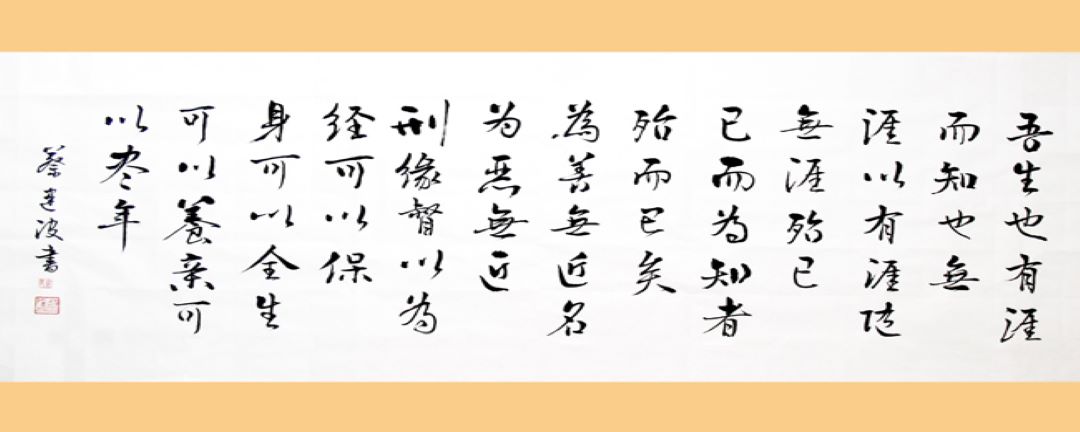 吾生也有涯
而知也無
涯以有涯随
無涯殆已
已而為知者
殆而已矣
為善無近名
为惡無近
刑緣督以為
经可以保
身可以全生
可以養亲可
以尽年
蔡建波書